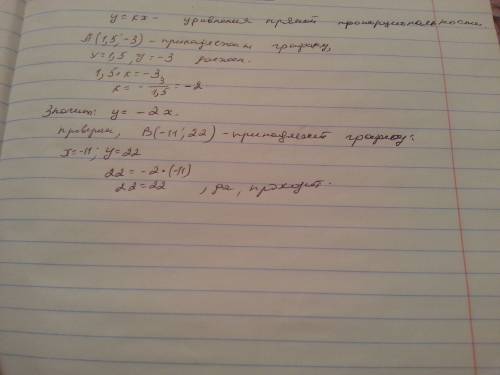 y = kx - уравнения прямой пропорциональности.
A (1,5; -3) - принадлежит графику,
x = 1,5, y = -3
1,5 · k = -3
k = - 3/1,5 = -2
Значит: y = -2x.
проверим, B(-11; 22) - принадлежит графику:
x = -11; y = 22
22 = -2 · (-11)
22 = 22 , да, проходит.